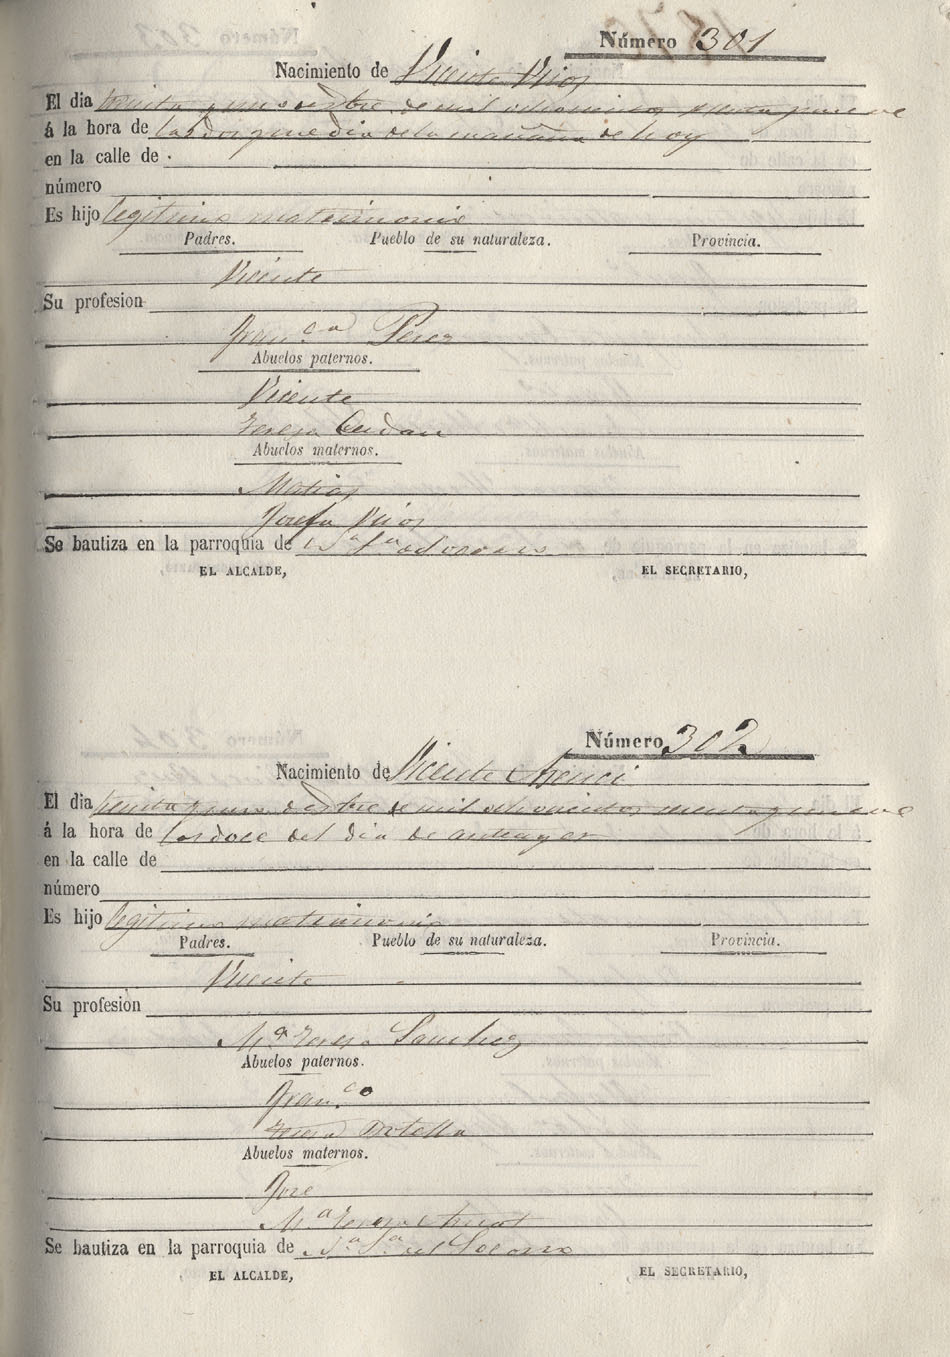 Número 301
Nacimiento de Vicente Rios
El dia treinta y uno de mil ochocientos sesenta y nueve
á la hora de las dos y media de la mañana de hoy
en la calle de
número
Es hijo legitimo matrimonio
Padres. Pueblo de su naturaleza. Provincia.
Vicente
Su profesion
Fran.ca Perez
Abuelos paternos.
Vicente
Teresa Cerdan
Abuelos maternos.
Matias
Josefa Rios
Se bautiza en la parroquia de
EL ALCALDE, EL SECRETARIO,
Número 302
Nacimiento de Vicente Asenci
El dia treinta y uno de mil ochocientos sesenta y nueve
á la hora de las doce del dia de anteayer
en la calle de
número
Es hijo legitimo matrimonio
Padres. Pueblo de su naturaleza. Provincia.
Vicente
Su profesion
M.a Teresa Sanchez
Abuelos paternos.
Fran.co
Teresa Botella
Abuelos maternos.
Jose
M.a Teresa
Se bautiza en la parroquia de N.a S.a del Socorro
EL ALCALDE, EL SECRETARIO,